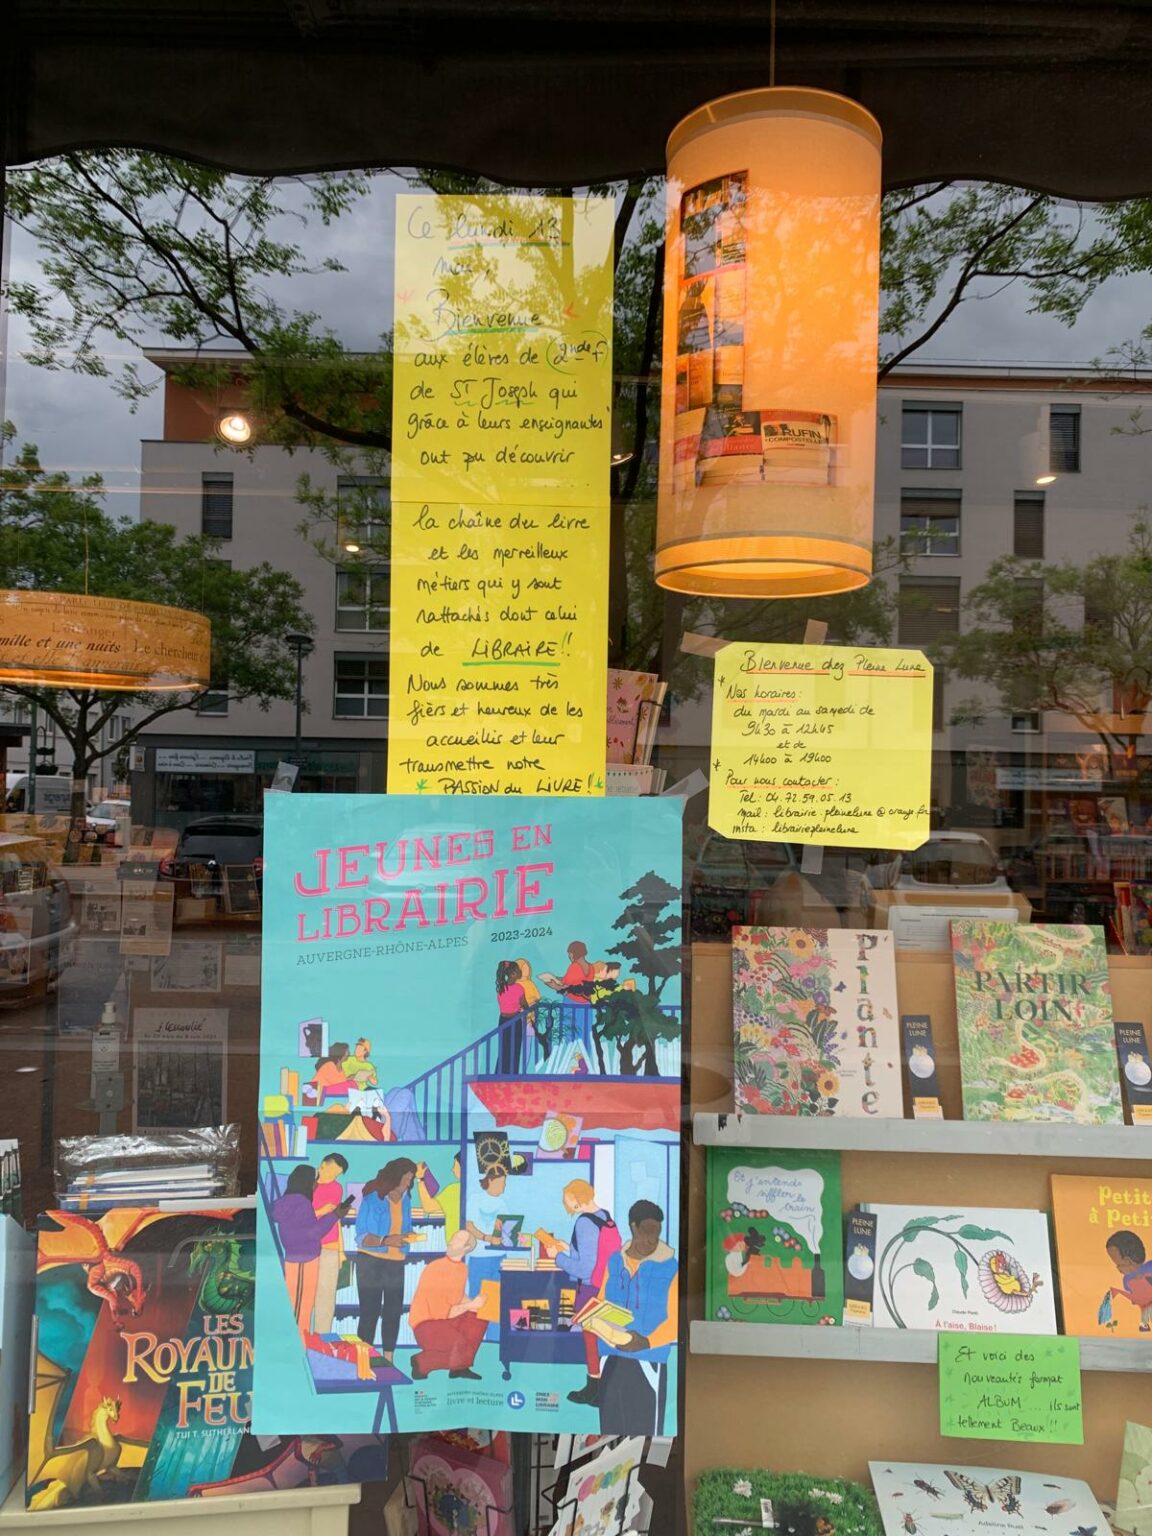 Ce lundi 13
mai,
Bienvenue
aux élèves de (2nde F)
de ST Joseph qui
grâce à leurs enseignantes
ont pu découvrir
la chaîne du livre
et les merveilleux
métiers qui y sont
rattachés dont celui
de LIBRAIRE!!
Nous sommes très
fiers et heureux de les
accueillir et leur
transmettre notre
* PASSION du LIVRE! *
RUFIN
COMPOSTELLE
L'étranger
mille et une nuits Le chercheur
Bienvenue chez Pleine Lune
* Nos horaires :
du mardi au samedi de
9h30 à 12h45
et de
14h00 à 19h00
* Pour nous contacter :
Tel : 04.72.59.05.13
mail : librairie.pleinelune@orange.fr
insta : librairiepleinelune
JEUNES EN
LIBRAIRIE
AUVERGNE-RHÔNE-ALPES 2023-2024
livre et lecture
Plante
PLEINE
LUNE
PARTIR
LOIN
PLEINE
LUNE
Et j'entends
siffler le
train
PLEINE
LUNE
Claude Ponti
À l'aise, Blaise !
Petit
à Peti
Et voici des
nouveautés format
ALBUM ... ils sont
tellement Beaux !!
LES
ROYAUM
DE
FEU
TUI T. SUTHERLAN